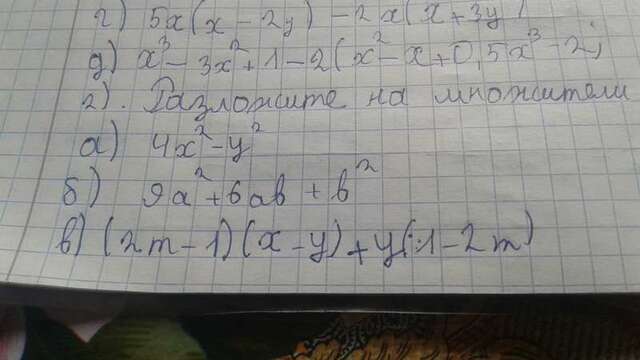 г) 5x(x-2y)-2x(x+3y)
д) x³-3x²+1-2(x²-x+0,5x³-2)
2). Разложите на множители
а) 4x²-y²
б) 9a²+6ab+b²
в) (2m-1)(x-y)+y(1-2m)